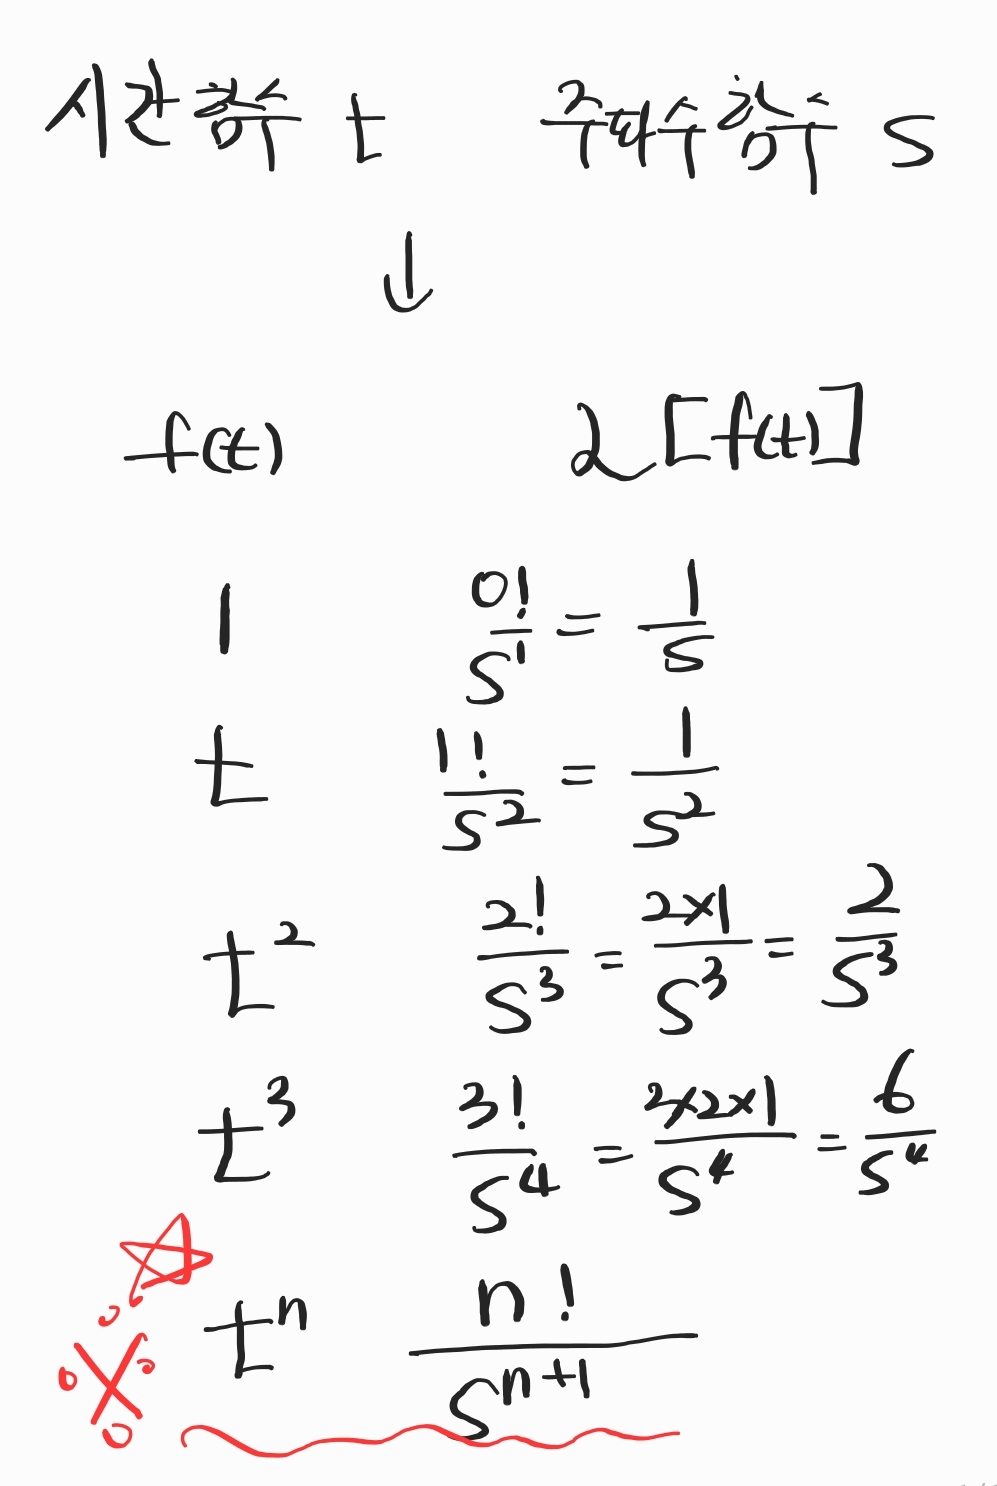 시간함수 t 주파수함수 s
↓
f(t) ℒ[f(t)]
1 0!/s¹ = 1/s
t 1!/s² = 1/s²
t² 2!/s³ = 2×1/s³ = 2/s³
t³ 3!/s⁴ = 3×2×1/s⁴ = 6/s⁴
☆※ tⁿ n!/sⁿ⁺¹